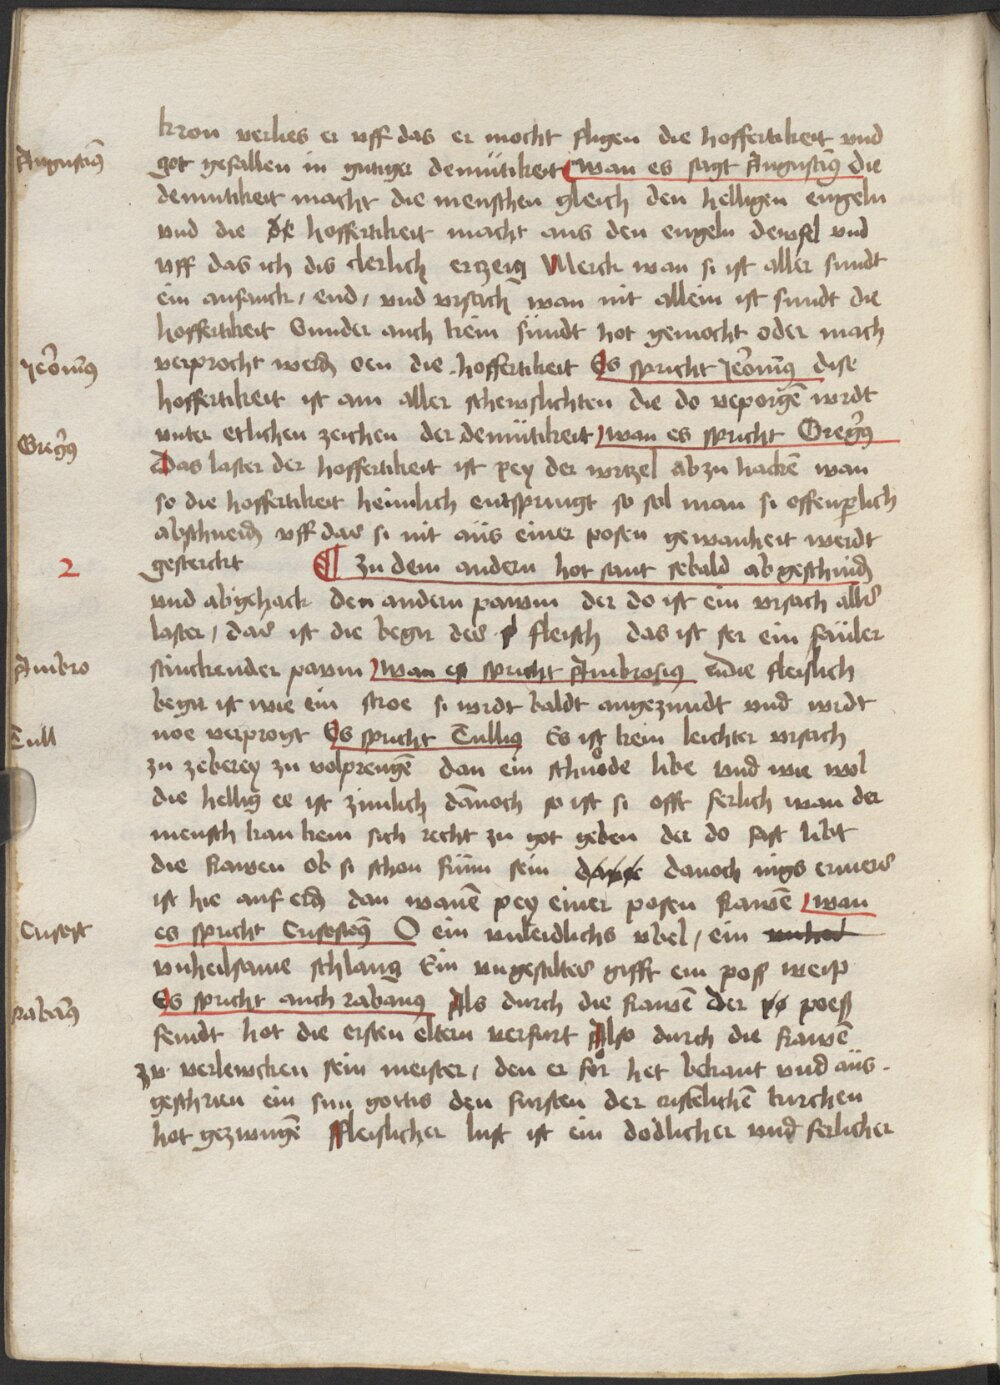 kron verlies er vff das er mocht fligen die hoffertikeit vnd
Augustin9
got gefallen in gutiger demütikeit wan es sagt Augustin9 die
demutikeit macht die menschen gleich den helligen engeln
vnd die hoffertikeit macht aus den engeln dewfel vnd
vff das ich dis clerlich ertzeig Merck wan si ist aller sundt
ein anfanck / end / vnd vrsach wan nit allein ist sundt die
hoffertikeit Sunder auch kein sündt hot gemocht oder mach
Jeronim9
verprocht werdn oen die hoffertikeit Es spricht Jeronim9 dise
hoffertikeit ist am aller schewslichten die do veporgē wirdt
Greg9
vnter etlichen zeichen der demütikeit wan es spricht Greg9
Das laster der hoffertikeit ist pey der wrtzel ab zu hackē wan
so die hoffertikeit heimlich entspringt so sol man si offenplich
abschneidn vff das si nit aüs einer posen gewanheit werdt
2
gesterckt ¶ zu dem andern hot sant sebald ab geschnidn
vnd abgehack den andern pawm der do ist ein vrsach alles
laster / das ist die begir des fleisch das ist ser ein fäuler
Ambro
stinckender pawm wan es spricht Ambrosius die fleislich
begir ist wie ein stroe si wirdt baldt angezundt vnd wirdt
Tull
noe verprogt Es spricht Tullius Es ist kein leichter vrsach
zu zeberey zu volprengē dan ein schnöde libe vnd wie wol
die hellig ee ist zimlich dānoch so ist si offt ferlich wan der
mensch kan kein sich recht zu got geben der do fast libt
die frawen ob si schon frum sein danoch nigs ermers
ist hie auf erdn dan wanē pey einer posen frawē wan
Crisost
es spricht Crisostom9 O ein vnleidlichs vbel / ein
vnheilsame schlang Ein vngestiltes gifft ein poss weip
Raban9
Es spricht auch rabanus Als durch die frawē der poess
feindt hot die ersten eltern verfurt Also durch die frawē
zu verlewcken sein meister / den er for het bekant vnd aüs
geschrien ein sun gottis den fursten der cristelichē kirchen
hot gezwingē Fleislicher lust ist ein dodlicher vnd ferlicher